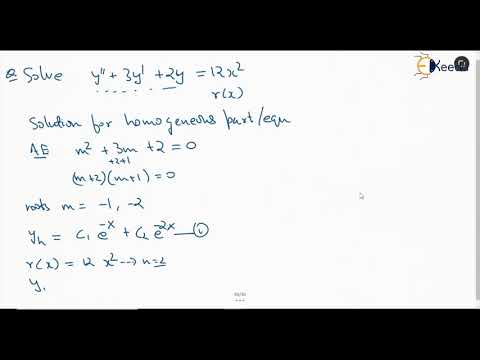 Q Solve y" + 3y' + 2y = 12x²
r(x)
Solution for homogeneous part/equn
AE m² + 3m + 2 = 0
+2+1
(m+2)(m+1) = 0
roots m = -1, -2
yₕ = C₁ e^-x + C₂ e^-2x
r(x) = 12 x² --> n=2
y